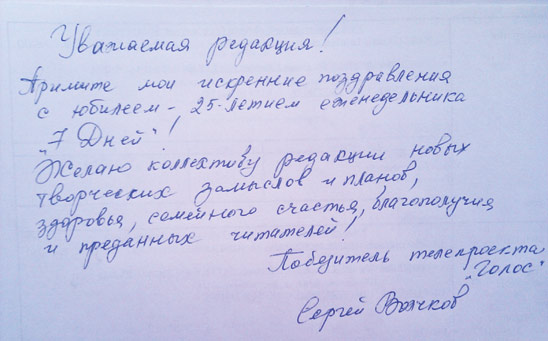 Уважаемая редакция!
Примите мои искренние поздравления
с юбилеем - 25-летием еженедельника
"7 Дней"!
Желаю коллективу редакции новых
творческих замыслов и планов,
здоровья, семейного счастья, благополучия
и преданных читателей!
Победитель телепроекта
"Голос"
Сергей Волчков